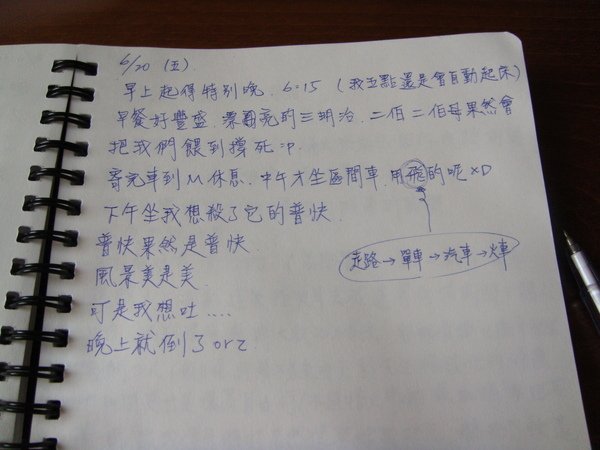 6/20 (五).
早上起得特別晚. 6:15 (我五點還是會自動起床)
早餐好豐盛. 漂亮的三明治. 二伯二伯母果然會
把我們餵到撐死:p.
寄完車到M休息. 中午才坐區間車. 用飛的呢XD
下午坐我想殺了它的普快.
普快果然是普快.
走路→單車→汽車→火車
風景美是美.
可是我想吐....
晚上就倒了orz